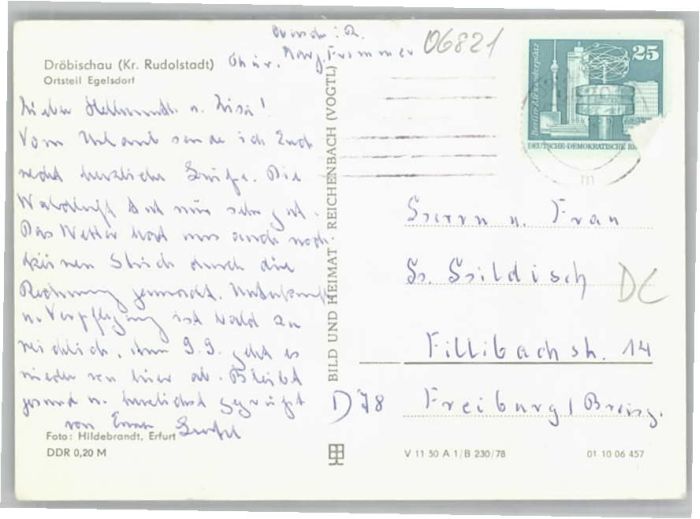 06821
Dröbischau (Kr. Rudolstadt)
Ortsteil Egelsdorf
Vom Urlaub sende ich Euch
recht herzliche Grüße. Die
Waldluft tut mir sehr gut.
Das Wetter hat uns auch noch
keinen Strich durch die
Rechnung gemacht. Unterkunft
u. Verpflegung ist bald zu
reichlich, am 9.9. geht es
wieder von hier ab. Bleibt
gesund u. herzlichst gegrüßt
von
Foto: Hildebrandt, Erfurt
DDR 0,20 M
BILD UND HEIMAT · REICHENBACH (VOGTL)
25
Berlin-Alexanderplatz
DEUTSCHE·DEMOKRATISCHE RE
Herrn u. Frau
DC
14
D 78 Freiburg/
V 11 50 A 1/B 230/78
01 10 06 457